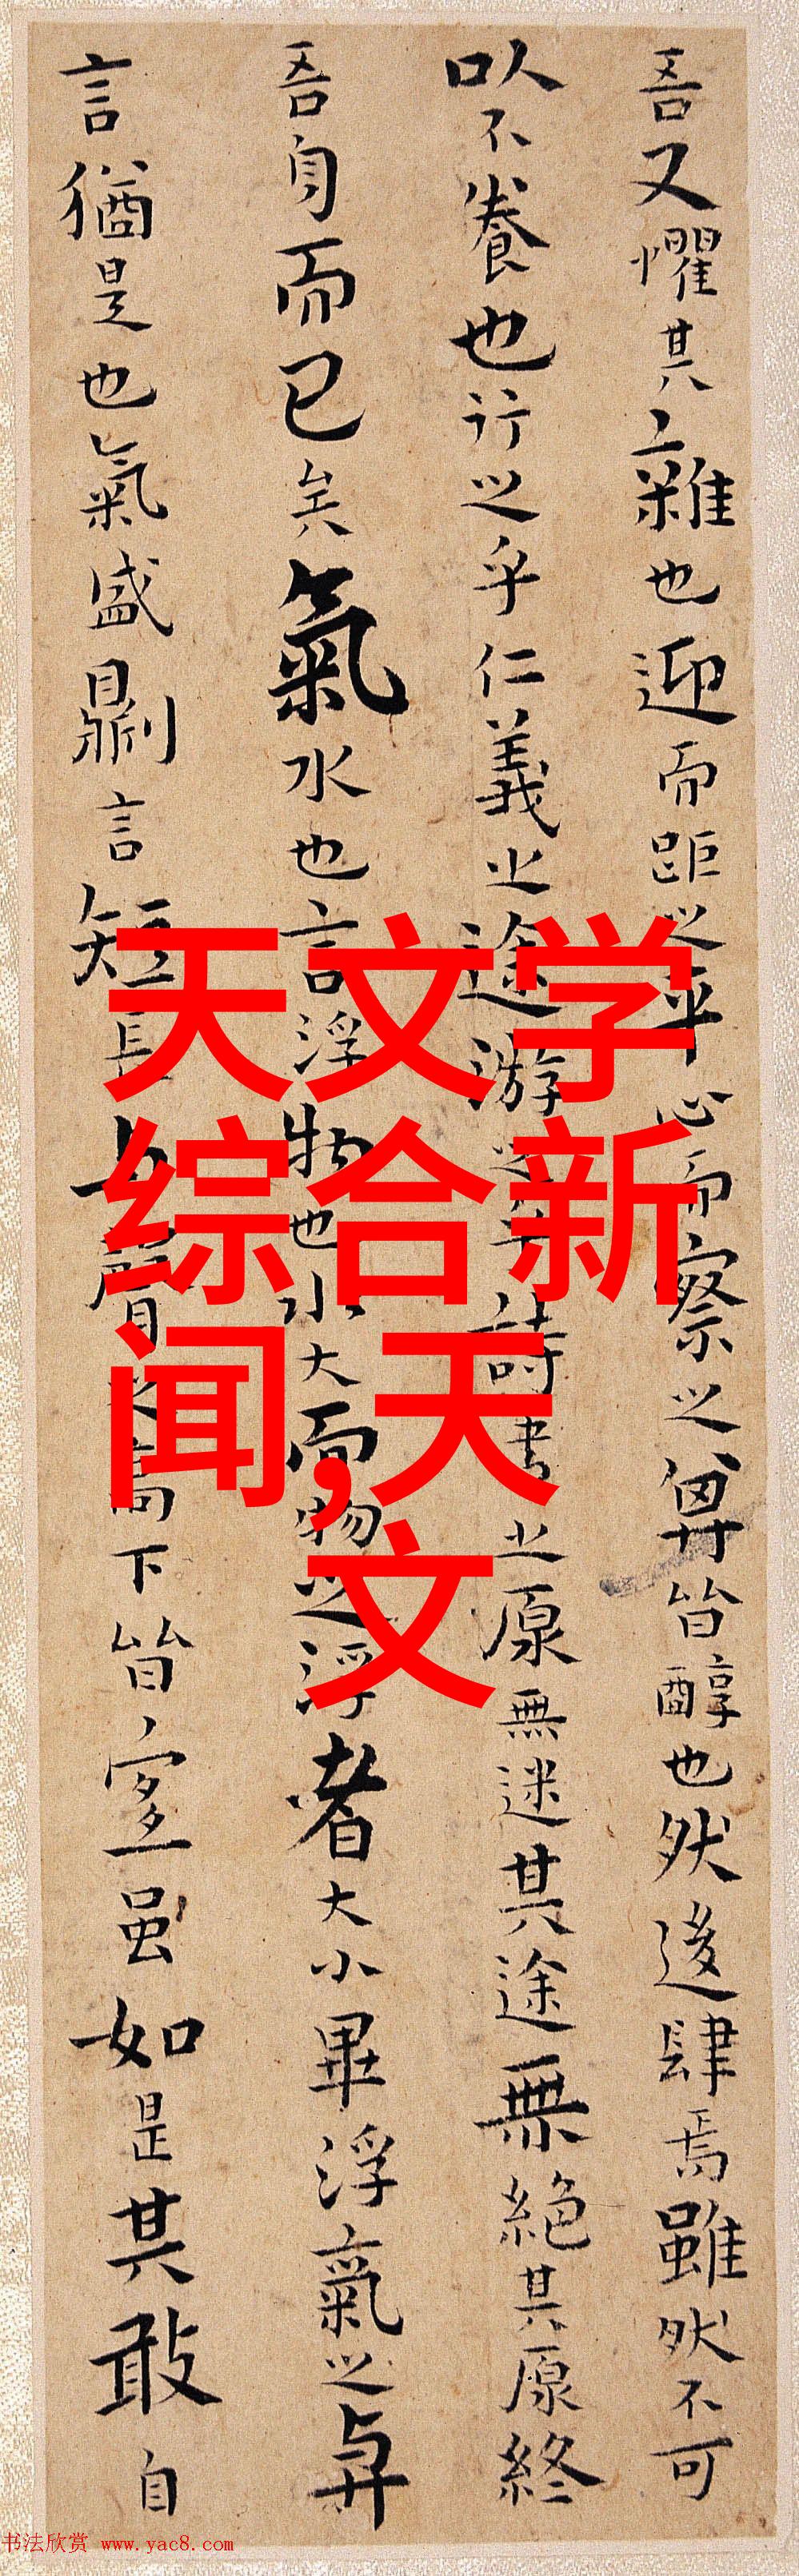 吾又懼其雜也迎而距之平心而察之其皆醇也然後肆焉雖然不可
以不養也行之乎仁義之途游之乎詩書之原無迷其途無絕其原終
吾身而已矣氣水也言浮物也水大而物之浮者大小畢浮氣之與
言猶是也氣盛則言短長與聲之高下皆宜雖如是其敢自
天文学
综合新
闻,天
文
书法欣赏 www.yac8.com